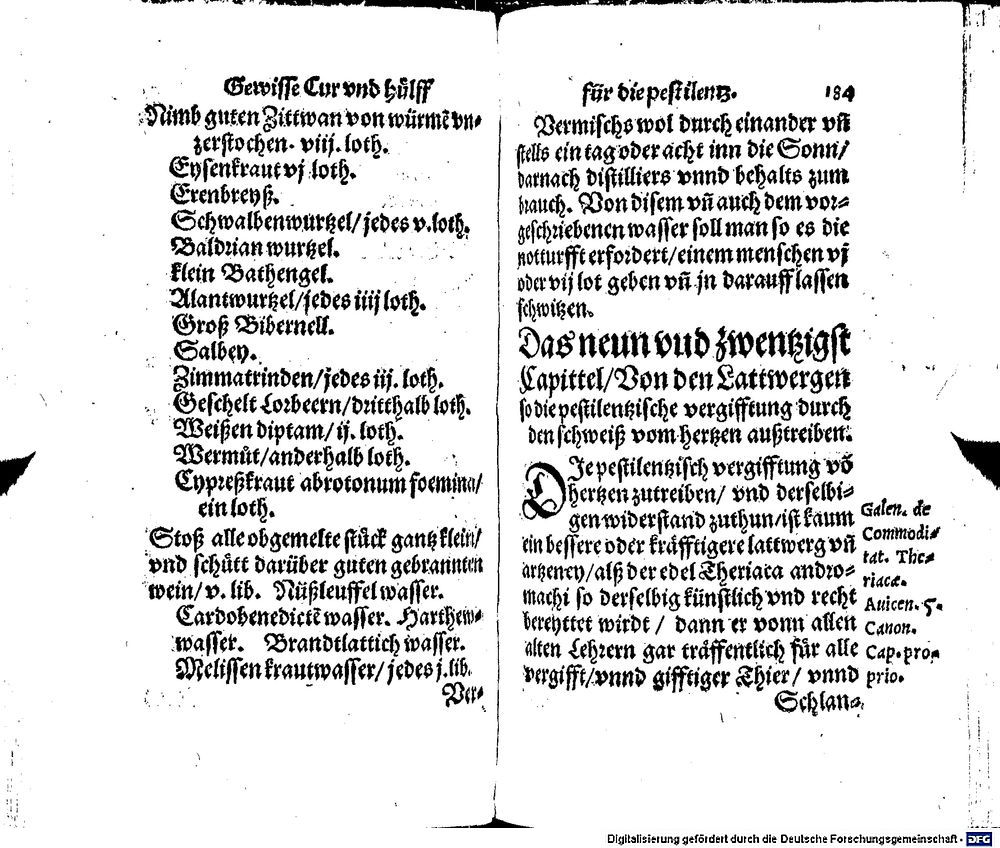 Gewisse Cur vnd hülff
Nimb guten Zittwan von würmẽ vn⸗
zerstochen. viij. loth.
Eysenkraut vj loth.
Erenbreyß.
Schwalbenwurtzel/ jedes v. loth.
Baldrian wurtzel.
klein Bathengel.
Alantwurtzel/jedes iiij loth.
Groß Bibernell.
Salbey.
Zimmatrinden/jedes iij. loth.
Geschelt Lorbeern/dritthalb loth.
Weißen diptam/ ij. loth.
Wermůt/anderhalb loth.
Cypreßkraut abrotonum foemina/
ein loth.
Stoß alle obgemelte stück gantz klein/
vnd schütt darüber guten gebrannten
wein/ v. lib. Nüßleuffel wasser.
Cardobenedictẽ wasser. Harthew⸗
wasser. Brandtlattich wasser.
Melissen krautwasser/ jedes j. lib.
Ver⸗
für die pestilentz. 184
Vermischs wol durch einander vñ
stells ein tag oder acht inn die Sonn/
darnach distilliers vnnd behalts zum
brauch. Von disem vñ auch dem vor⸗
geschriebenen wasser soll man so es die
notturfft erfordert/einem menschen vj
oder vij lot geben vñ jn darauff lassen
schwitzen.
Das neun vnd zwentzigst
Capittel/Von den Lattwergen
so die pestilentzische vergifftung durch
den schweiß vom hertzen außtreiben.
DJe pestilentzisch vergifftung võ
hertzen zutreiben/ vnd derselbi⸗
gen widerstand zuthun/ist kaum
ein bessere oder kräfftigere lattwerg vñ
artzeney/alß der edel Theriaca andro⸗
machi so derselbig künstlich vnd recht
bereyttet wirdt / dann er vonn allen
alten Lehrern gar träffentlich für alle
vergifft/vnnd gifftiger Thier/ vnnd
Schlan⸗
Galen. de
Commodi⸗
tat. The⸗
riacæ.
Auicen. 5.
Canon.
Cap. pro⸗
prio.
Digitalisierung gefördert durch die Deutsche Forschungsgemeinschaft - DFG